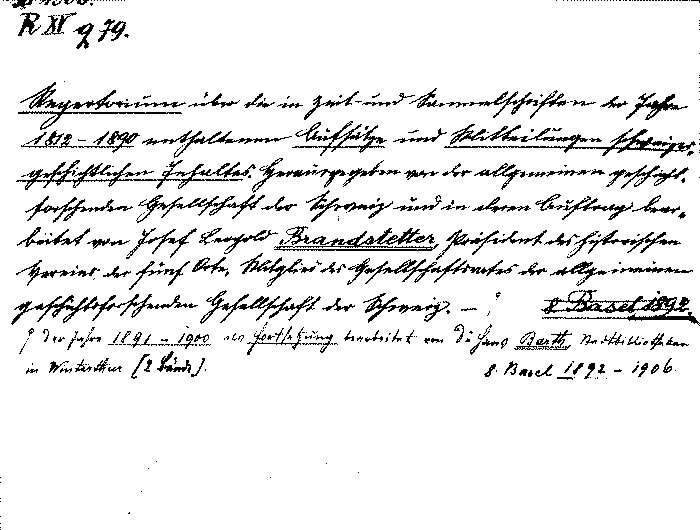 R XV q 79.
Repertorium über die in Zeit- und Sammelschriften der Jahre
1812-1890 enthaltenen Aufsätze und Mitteilungen schweizer-
geschichtlichen Inhaltes. Herausgegeben von der allgemeinen geschicht-
forschenden Gesellschaft der Schweiz und in deren Auftrag bear-
beitet von Josef Leopold Brandstetter, Präsident des historischen
Vereins der fünf Orte, Mitglied des Gesellschaftsrates der allgemeinen
geschichtsforschenden Gesellschaft der Schweiz. -
8 Basel 1892.
der Jahre 1891-1900 als Fortsetzung bearbeitet von Dr Hans Barth, Stadtbibliothekar
in Winterthur [2 Bände].
8. Basel 1892-1906.